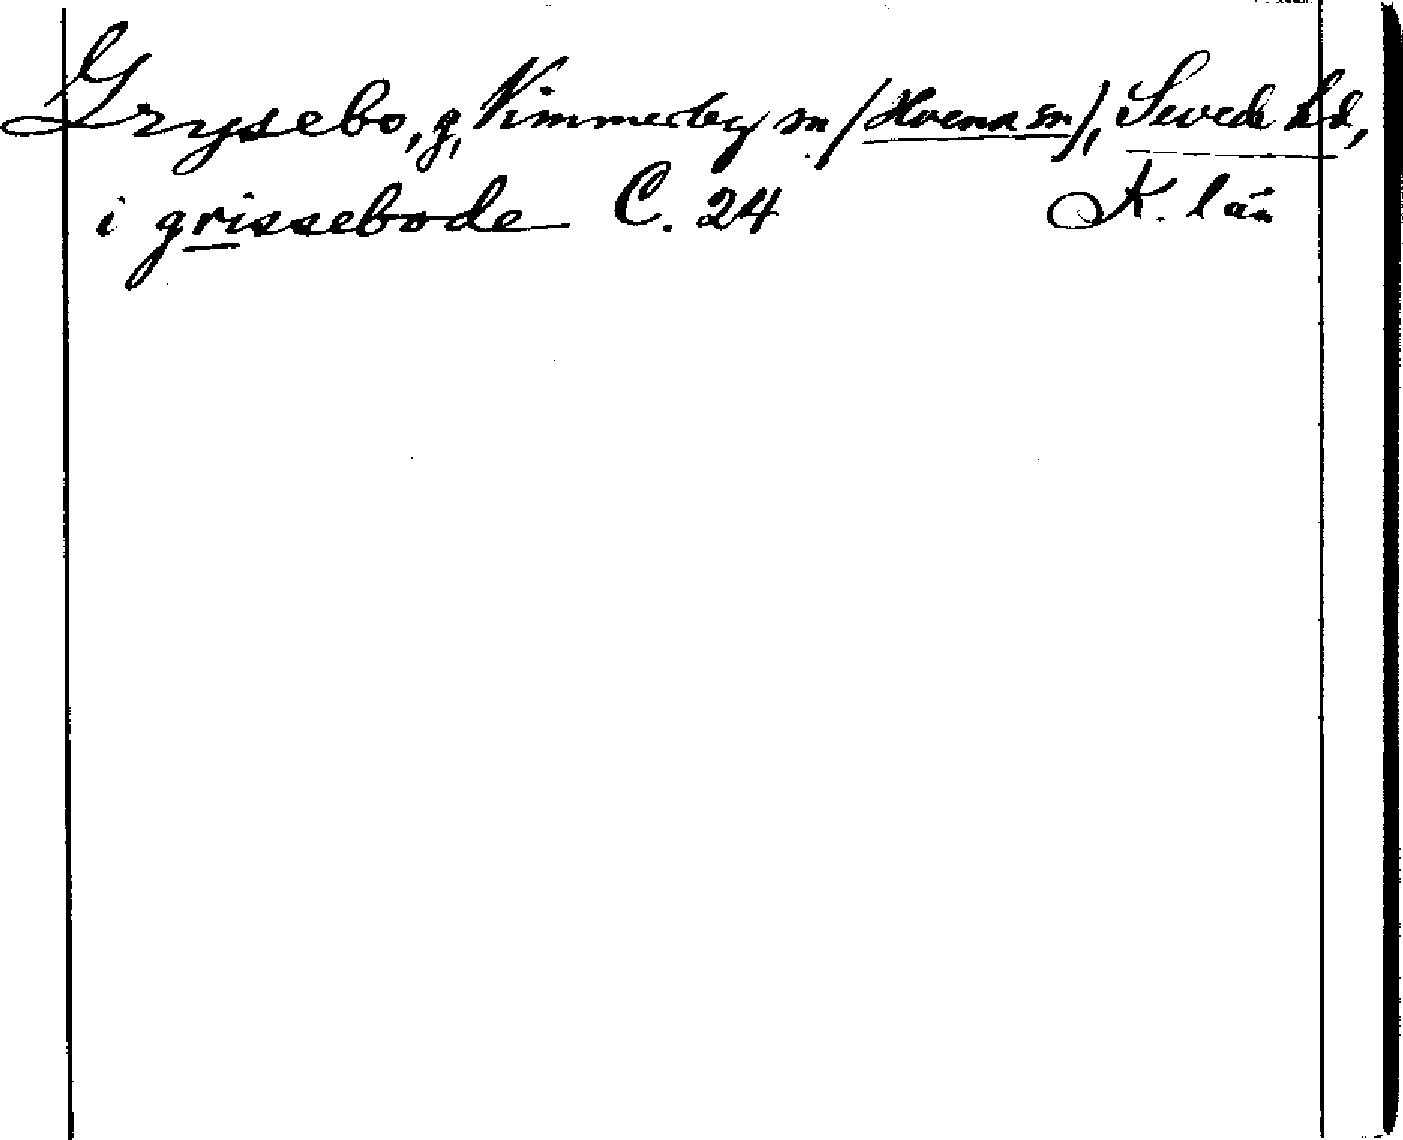 Grysebo, g, Vimmerby sn (Hvena sn), Sevede hd,
i grissebode C. 24 K. län